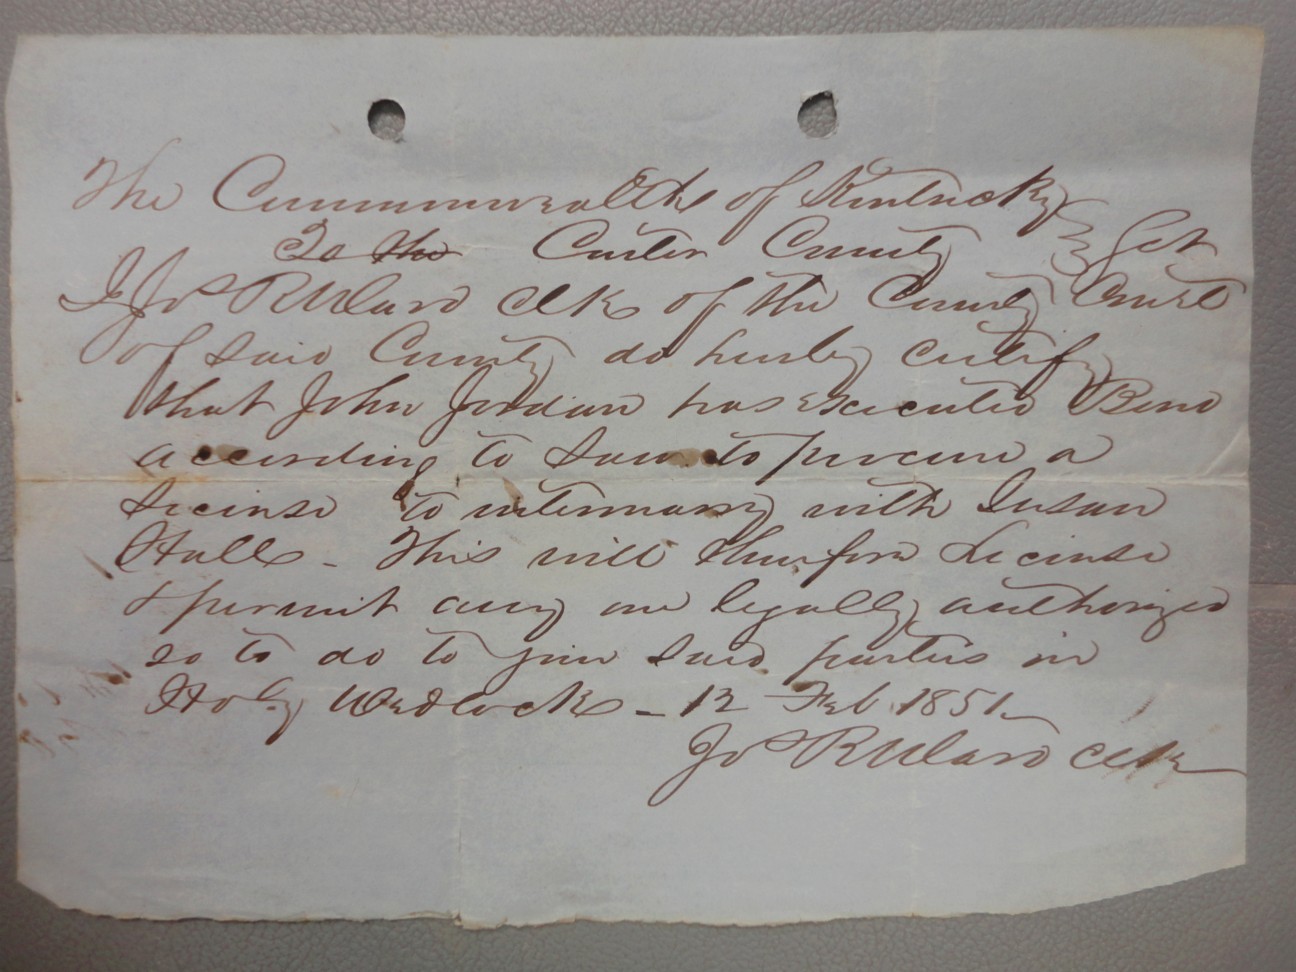 The Commonwealth of Kentucky
To the Carter County } Sct
I Jos R Ward Clk of the County Court
of said County do hereby certify
that John Jordan has executed Bond
according to Law to procure a
License to intermarry with Susan
Hall - This will therefore License
& permit any one legally authorized
so to do to join said parties in
Holy Wedlock - 12 Feb 1851
Jos R Ward Clk